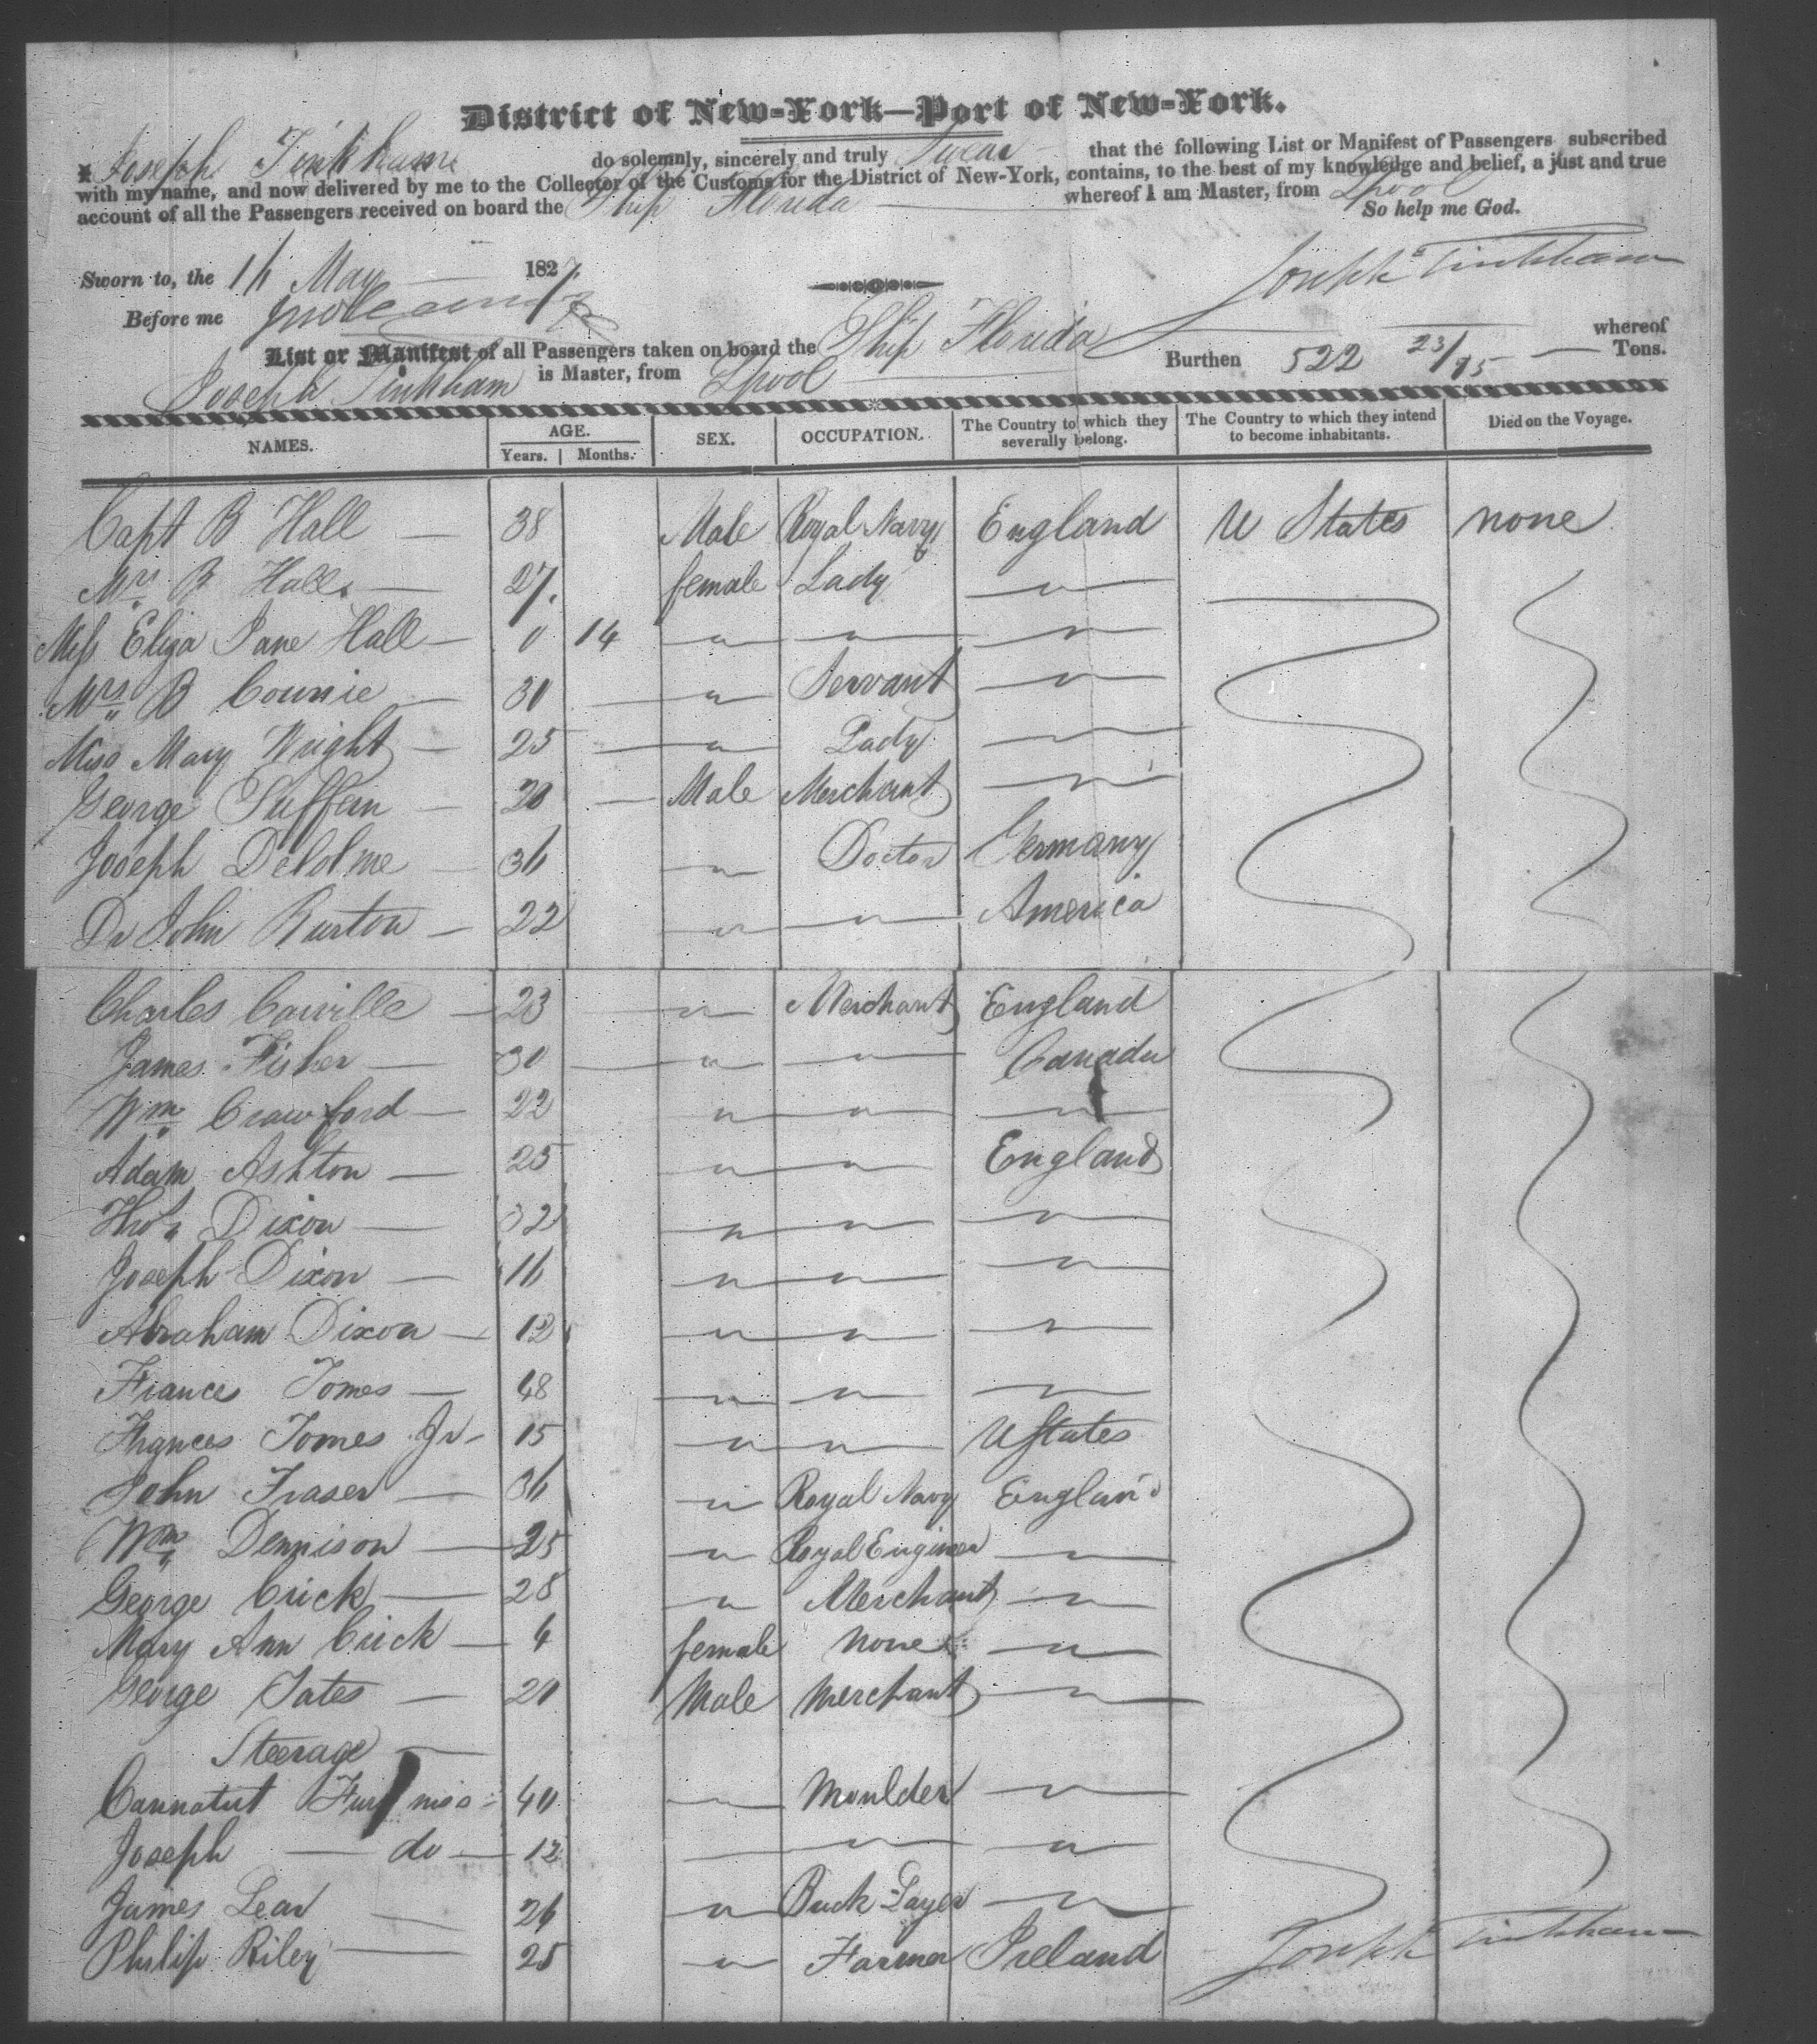 District of New-York—Port of New-York.
I Joseph Tinkham do solemnly, sincerely and truly Swear that the following List or Manifest of Passengers subscribed
with my name, and now delivered by me to the Collector of the Customs for the District of New-York, contains, to the best of my knowledge and belief, a just and true
account of all the Passengers received on board the Ship Florida whereof I am Master, from Lpool
So help me God.
Sworn to, the 16 May 1827. Joseph Tinkham
Before me
List or Manifest of all Passengers taken on board the Ship Florida whereof
Joseph Tinkham is Master, from Lpool Burthen 522 23/95 Tons.
NAMES. AGE. Years. Months. SEX. OCCUPATION. The Country to which they severally belong. The Country to which they intend to become inhabitants. Died on the Voyage.
Capt B Hall — 38 Male Royal Navy England U States none
Mrs B Hall — 27. female Lady "
Miss Eliza Jane Hall — 0 14 " " "
Mrs B Cownie — 30 " Servant "
Miss Mary Wright — 25 " Lady "
George Suffern — 20 Male Merchant "
Joseph Delolme — 36 " Doctor Germany
Dr John Burton — 22 " " America
Charles Carville — 23 " Merchant England
James Fisher — 30 " " Canada
Wm Crawford — 22 " " "
Adam Ashton — 25 " " England
Thos Dixon — 32 " " "
Joseph Dixon — 16 " " "
Abraham Dixon — 12 " " "
Frances Tomes — 48 " " "
Frances Tomes Jr - 15 " " U States
John Fraser — 36 " Royal Navy England
Wm Dennison — 25 " Royal Engineer "
George Crick — 28 " Merchant "
Mary Ann Crick — 4 female None "
George Tates — 20 Male Merchant "
Steerage —
Furniss - 40 " Moulder "
Joseph — do — 12 " "
James Lear — 26 " Brick Layer "
Philip Riley — 25 " Farmer Ireland
Joseph Tinkham